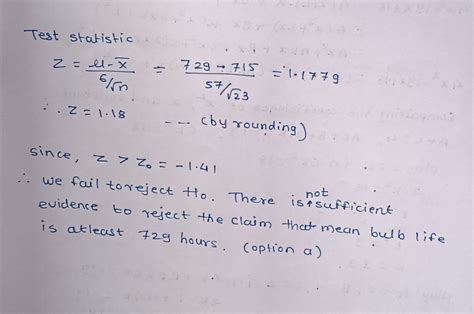 Test statistic
Z = μ-x̅ / σ/√n = 729-715 / 57/√23 = 1.1779
∴ Z = 1.18 --- (by rounding)
since, Z > Z₀ = -1.41
∴ we fail to reject H₀. There is not sufficient
evidence to reject the claim that mean bulb life
is atleast 729 hours. (option a)